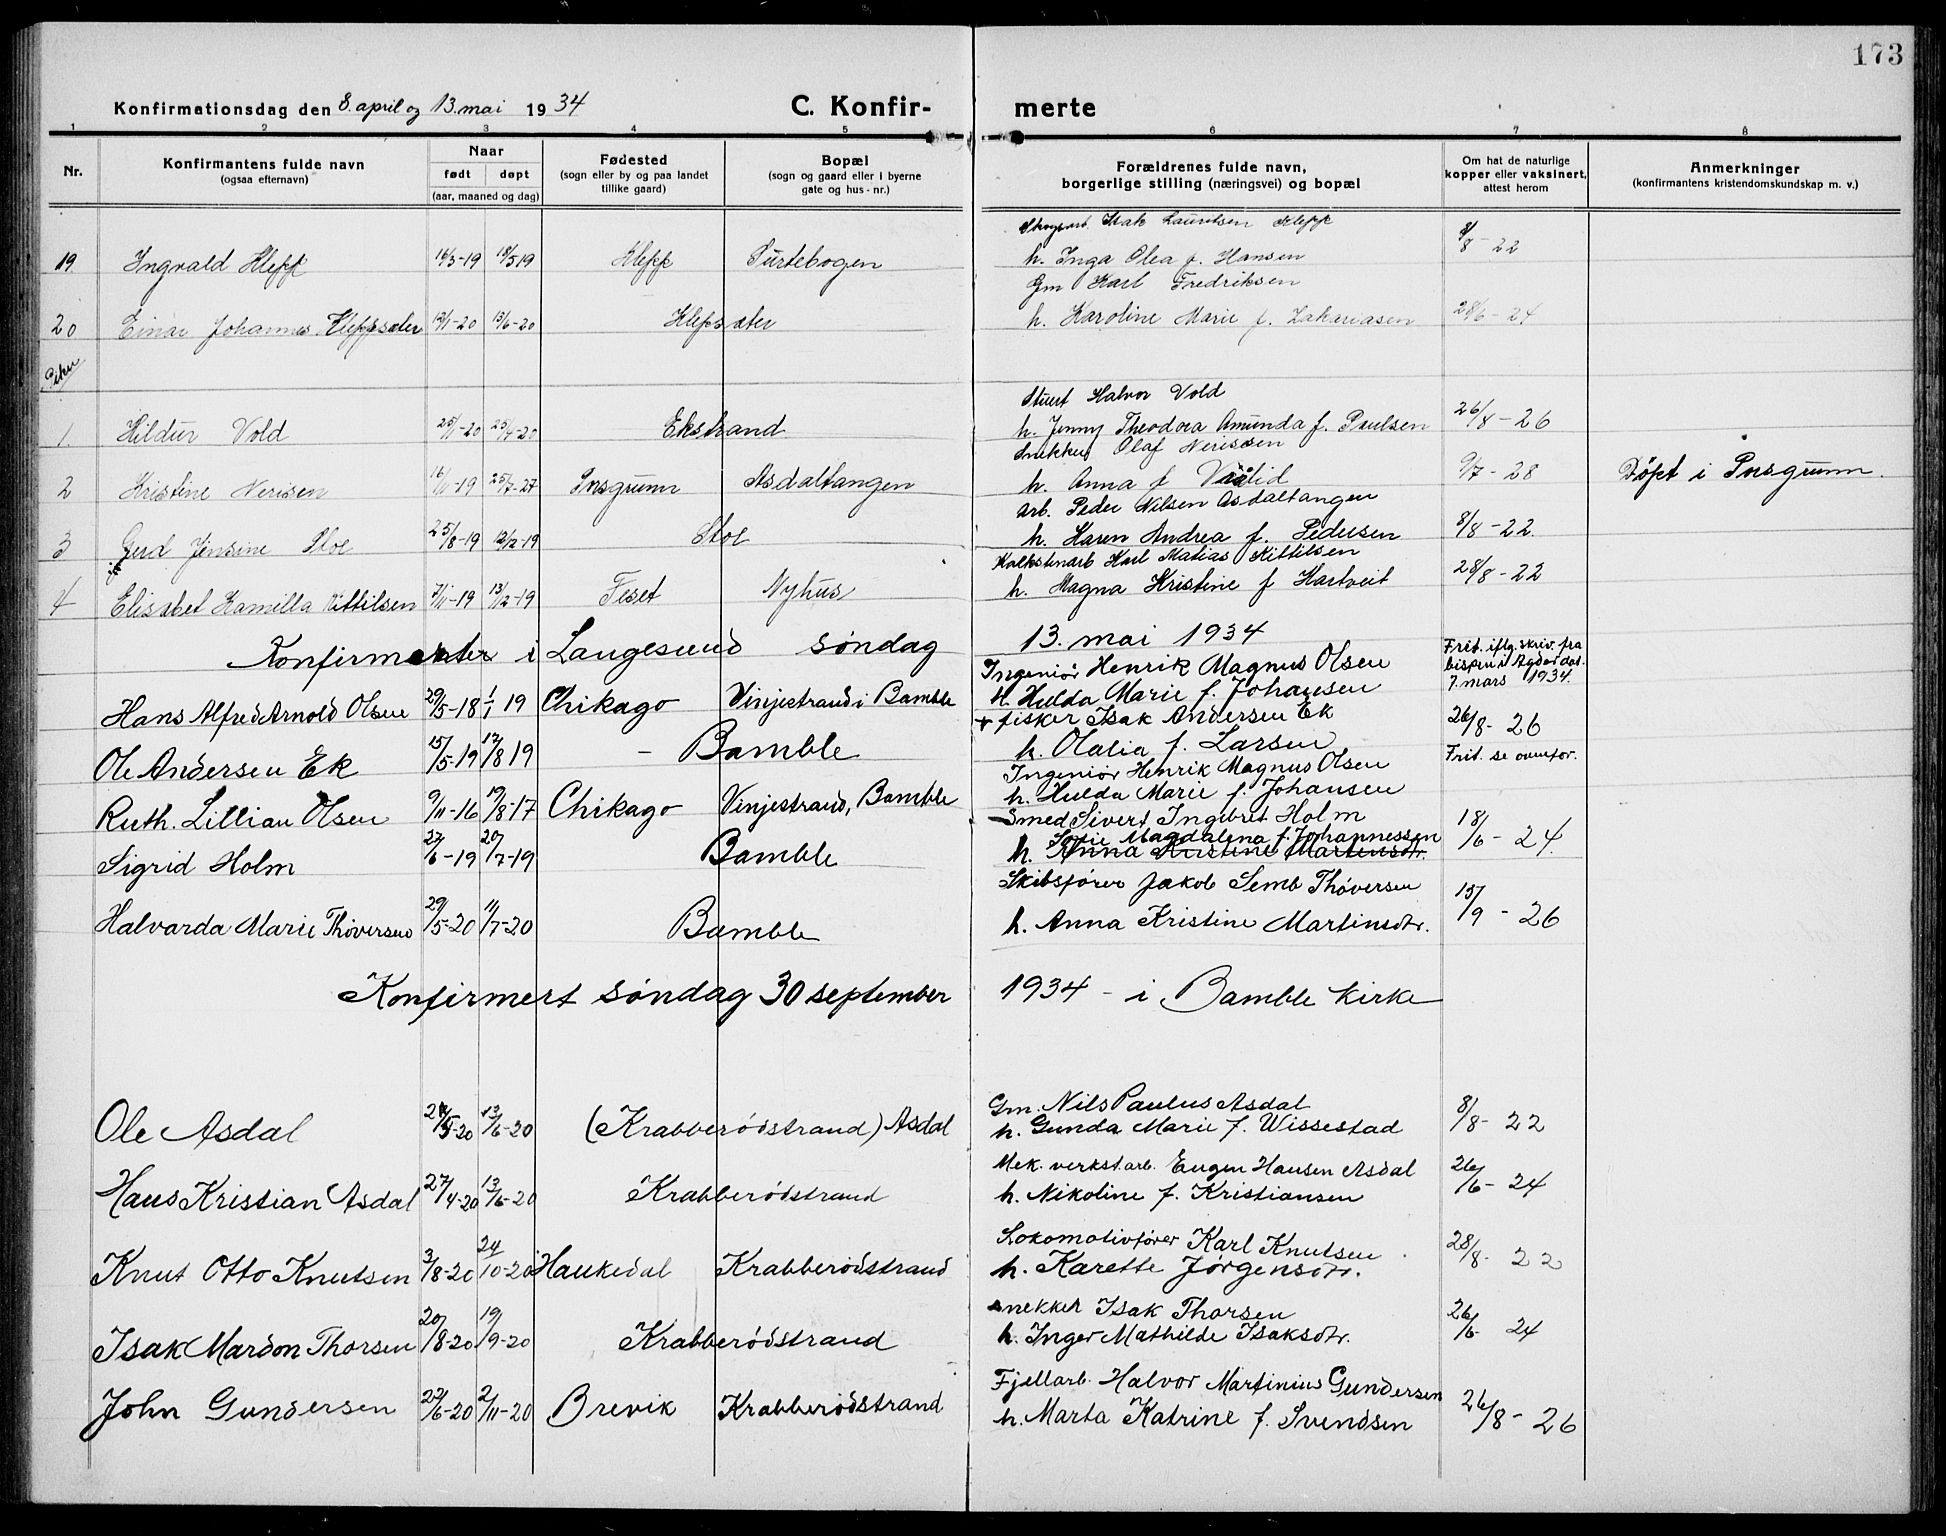 173
Konfirmationsdag den 8. april og 13. mai 1934 C. Konfir- merte
1 2 3 4 5 6 7 8
Nr. Konfirmantens fulde navn (ogsaa efternavn) Naar født døpt (aar, maaned og dag) Fødested (sogn eller by og paa landet tillike gaard) Bopæl (sogn og gaard eller i byerne gate og hus-nr.) Forældrenes fulde navn, borgerlige stilling (næringsvei) og bopæl Om hat de naturlige kopper eller vaksinert, attest herom Anmerkninger (konfirmantens kristendomskundskap m. v.)
Skogsarb. Isak Lauritsen Klepp
19 Ingvald Klepp 14/3-19 18/5 19 Klepp Surtebogen h. Inga Olea f. Hansen 8/8-22
Gm Karl Fredriksen
20 Einar Johannes Kleppsæter 12/1-20 13/6-20 Klepsæter h. Karoline Marie f. Zakariasen 28/6-24
Piker
Stuert Halvor Vold
1 Hildur Vold 25/1-20 25/4-20 Ekstrand h. Jenny Theodora Amunda f. Paulsen 26/8-26
Snekker Olaf Nerissen
2 Kristine Nerisen 16/11-19 25/7-27 Porsgrunn Asdaltangen h. Anna f. 9/7-28 Døpt i Porsgrunn.
arb. Peder Nilsen Asdaltangen
3 Gerd Jensine Stoe 25/8-19 12/12-19 Stoe h. Haren Andrea f. Pedersen 8/8-22
Kalkstenarb Karl Matias Kittilsen
4 Elisabet Kamilla Kittilsen 7/11-19 13/12-19 Feset Nyhus h. Magna Kristine f Hartveit 28/8-22
Konfirmanter i Langesund søndag 13. mai 1934
Ingeniør Henrik Magnus Olsen Frit. iflg. skriv. fra bispen i Agder dat. 7. mars 1934.
Hans Alfred Arnold Olsen 29/5-18 1/1 19 Chikago Vinjestrand i Bamble H. Hulda Marie f. Johansen
+ fisker Isak Andersen Ek 26/8-26
Ole Andersen Ek 15/5-19 17/8 19 - Bamble h. Olalia f. Larsen
Ingeniør Henrik Magnus Olsen Frit. se ovenfor.
Ruth. Lillian Olsen 9/11-16 19/8-17 Chikago Vinjestrand, Bamble h. Hulda Marie f. Johansen
Smed Sivert Ingebret Holm 18/6-24.
Sofie Magdalena f. Johannessen
Sigrid Holm 27/6-19 20/7-19 Bamble h. Anna Kristine Martinsdtr.
Skibsfører Jakob Semb Thøversen
Halvarda Marie Thøversen 29/5-20 11/7-20 Bamble h. Anna Kristine Martinsdtr. 15/9-26
Konfirmert søndag 30 september 1934 - i Bamble Kirke
Gm. Nils Paulus Asdal
Ole Asdal 13/6-20 (Krabberødstrand) Asdal h. Gunda Marie f. Wissestad 8/8-22
Mek. verkst arb. Eugen Hansen Asdal
Hans Kristian Asdal 27/4-20 13/6-20 Krabberødstrand h. Nikoline f. Kristiansen 26/6-24
Lokomotivfører Karl Knutsen
Knut Otto Knutsen 3/8-20 24/10-20 Haukedal Krabberødstrand h. Karette Jørgensdtr. 28/8-22
snekker Isak Thorsen
Isak Mardon Thorsen 20/8-20 19/9-20 Krabberødstrand h. Inger Mathilde Isaksdtr. 26/6-24
Fjellarb. Halvor Martinius Gundersen
John Gundersen 22/6-20 2/11-20 Brevik Krabberødstrand h. Marta Katrine f. Svendsen 26/8-26